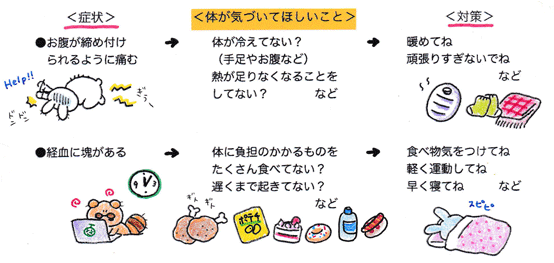 ＜症状＞
＜体が気づいてほしいこと＞
＜対策＞
●お腹が締め付け
られるように痛む
➔
体が冷えてない？
（手足やお腹など）
熱が足りなくなることを
してない？ など
➔
暖めてね
頑張りすぎないでね
など
Help!!
ドンドン
ぎゅー
●経血に塊がある
➔
体に負担のかかるものを
たくさん食べてない？
遅くまで起きてない？
など
➔
食べ物気をつけてね
軽く運動してね
早く寝てね など
ギト
ギト
ポテチ
スピピ